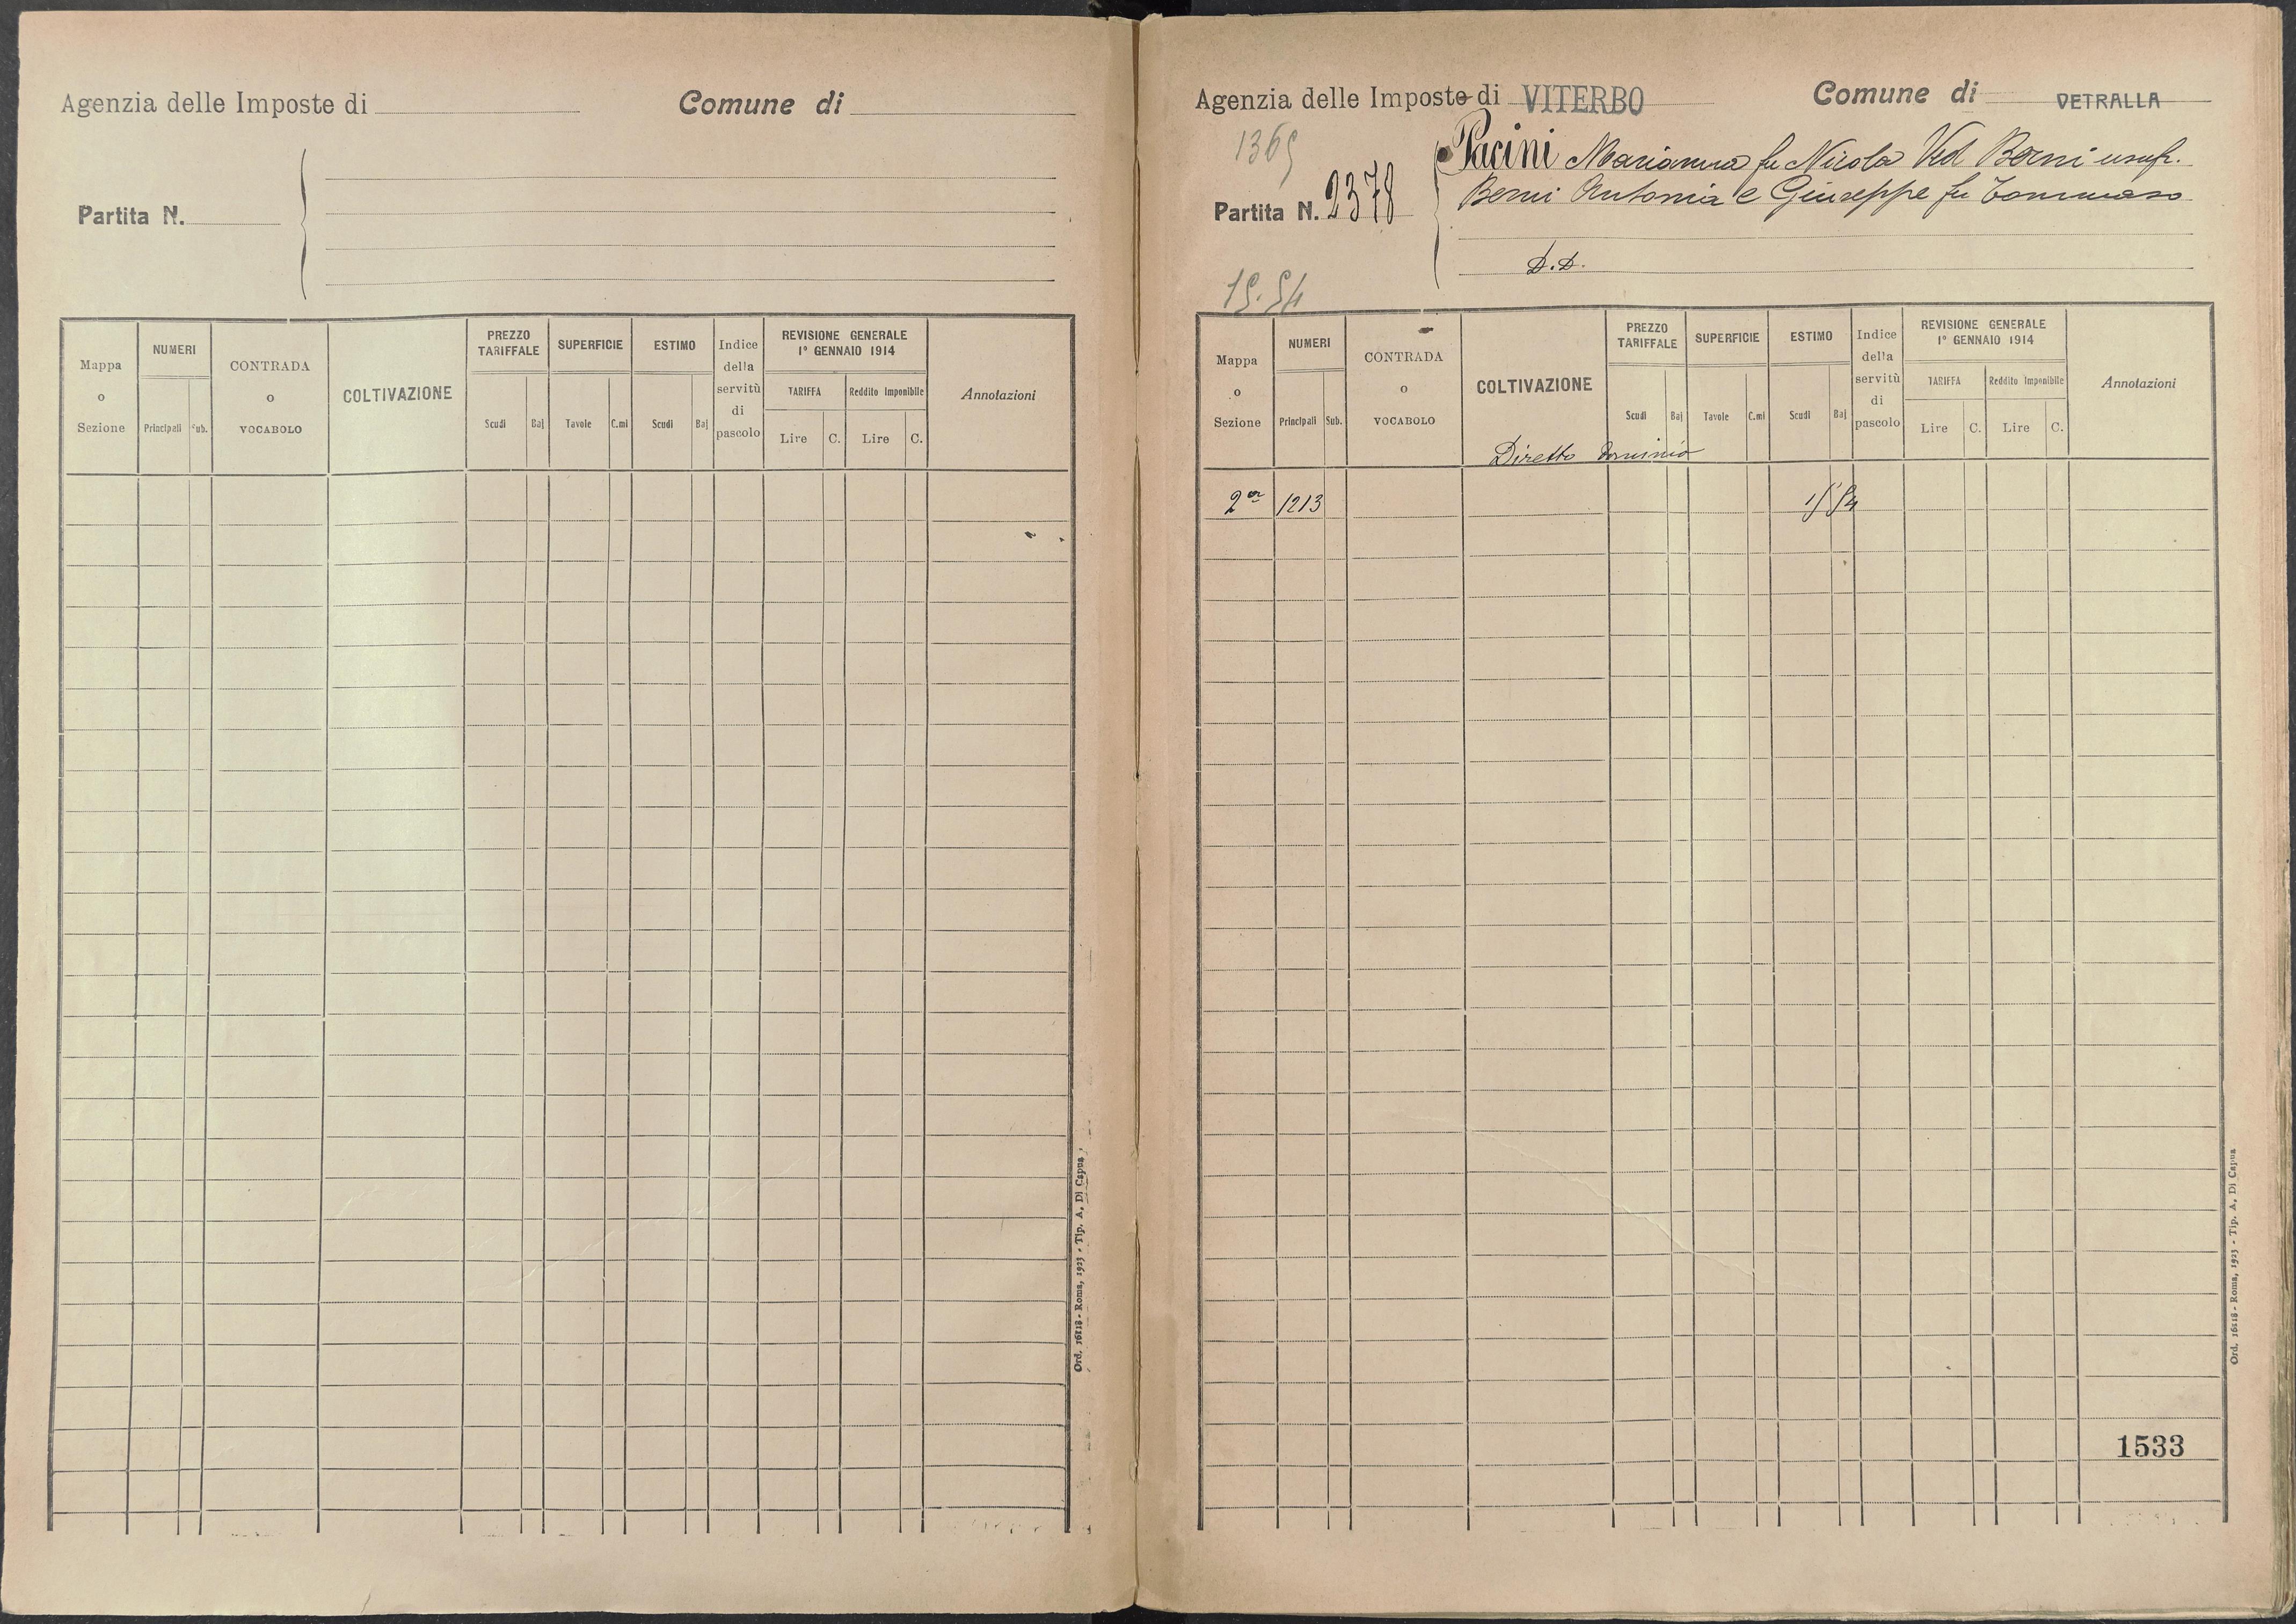 Agenzia delle Imposte di
Comune di
Partita N.
Mappa o Sezione
NUMERI
Principali
Sub.
CONTRADA o VOCABOLO
COLTIVAZIONE
PREZZO TARIFFALE
Scudi
Baj
SUPERFICIE
Tavole
C.mi
ESTIMO
Scudi
Baj
Indice della servitù di pascolo
REVISIONE GENERALE
1° GENNAIO 1914
TARIFFA
Lire
C.
Reddito Imponibile
Lire
C.
Annotazioni
Ord. 16118 - Roma, 1923 - Tip. A. Di Capua
Agenzia delle Imposte di VITERBO
Comune di VETRALLA
1365
Pacini Marianna fu Nicola Ved Borni usufr.
Partita N. 2378
Borni Antonia e Giuseppe fu Tommaso
D.D.
15.54
Mappa o Sezione
NUMERI
Principali
Sub.
CONTRADA o VOCABOLO
COLTIVAZIONE
PREZZO TARIFFALE
Scudi
Baj
SUPERFICIE
Tavole
C.mi
ESTIMO
Scudi
Baj
Indice della servitù di pascolo
REVISIONE GENERALE
1° GENNAIO 1914
TARIFFA
Lire
C.
Reddito Imponibile
Lire
C.
Annotazioni
Diretto dominio
2a 1213 15 54
1533
Ord. 16118 - Roma, 1923 - Tip. A. Di Capua